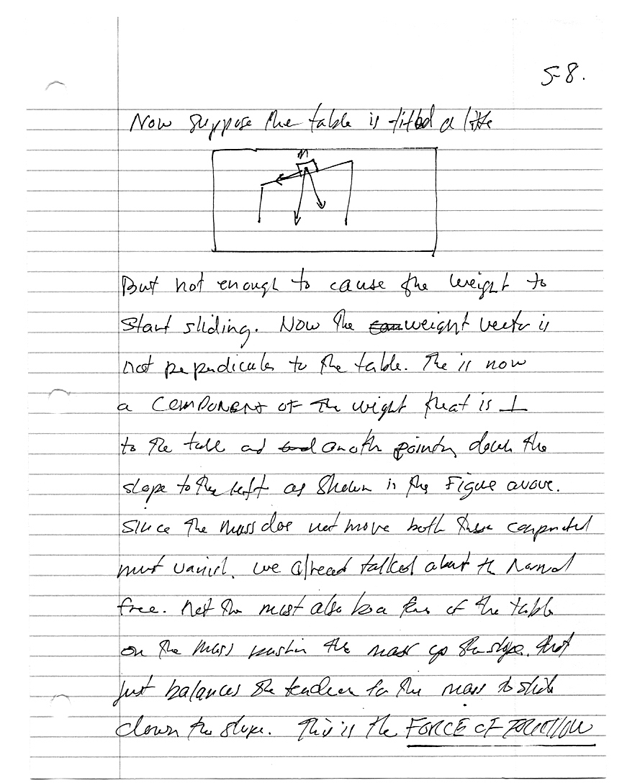 5-8.
Now suppose the table is tilted a little
m
But not enough to cause the weight to
start sliding. Now the weight vector is
not perpendicular to the table. The is now
a COMPONENT OF the weight that is ⊥
to the table and another pointing down the
slope to the left as shown in the Figure above.
Since the mass doe not move both these
must vanish. we already talked about the Normal
force. Not the must also be a force of the table
on the mass the mass up the slope that
just balances the for the mass to slide
down the slope. This is the FORCE OF FRICTION